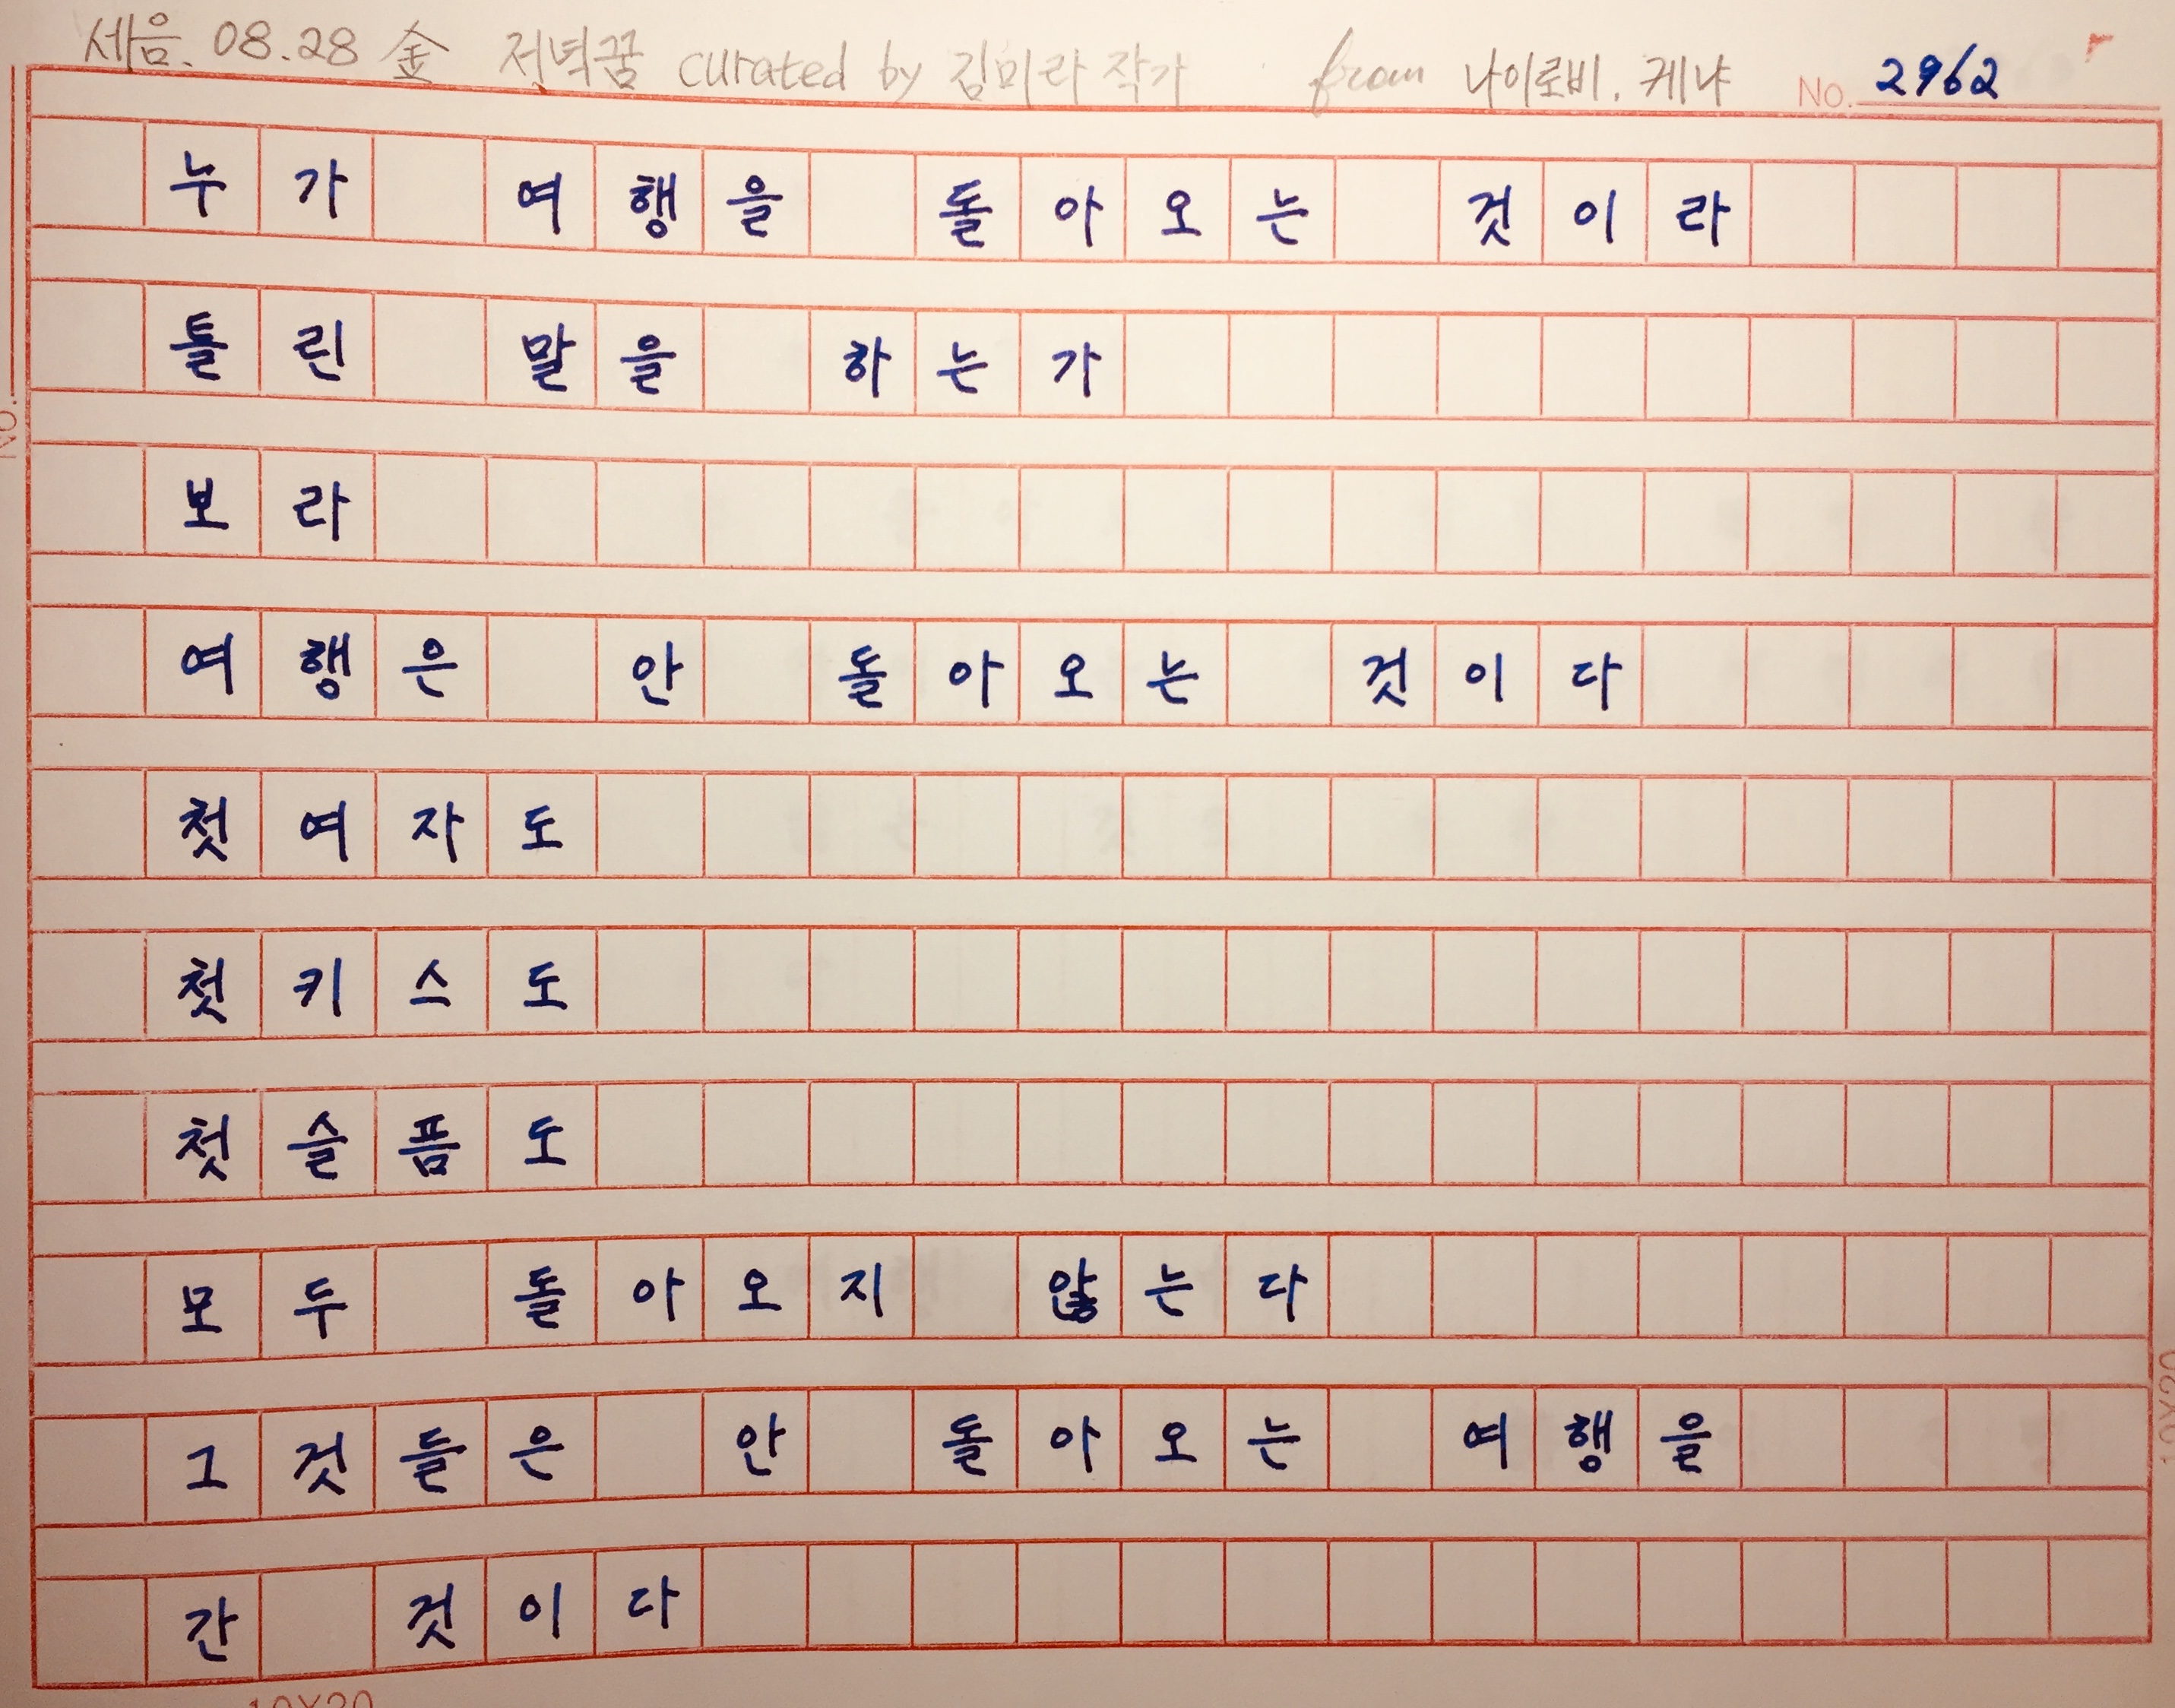 세음. 08.28 金 저녁꿈 curated by 김미라 작가 from 나이로비, 케냐 No. 2962
누가 여행을 돌아오는 것이라
틀린 말을 하는가
보라
여행은 안 돌아오는 것이다
첫여자도
첫키스도
첫슬픔도
모두 돌아오지 않는다
그것들은 안 돌아오는 여행을
간 것이다
No.
10X20
10X20